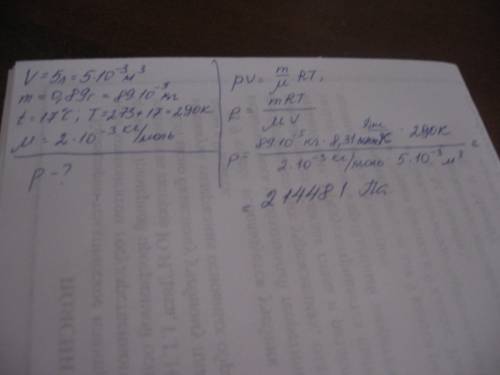 V = 5л = 5·10⁻³ м³
m = 0,89г = 89·10⁻⁵ кг
t = 17°C; T = 273 + 17 = 290К
M = 2·10⁻³ кг/моль
p - ?
pV = m/μ RT;
P = mRT / μV
p = 89·10⁻⁵ кг · 8,31 · 290К / 2·10⁻³ кг/моль 5·10⁻³ м³ =
= 214481 Па